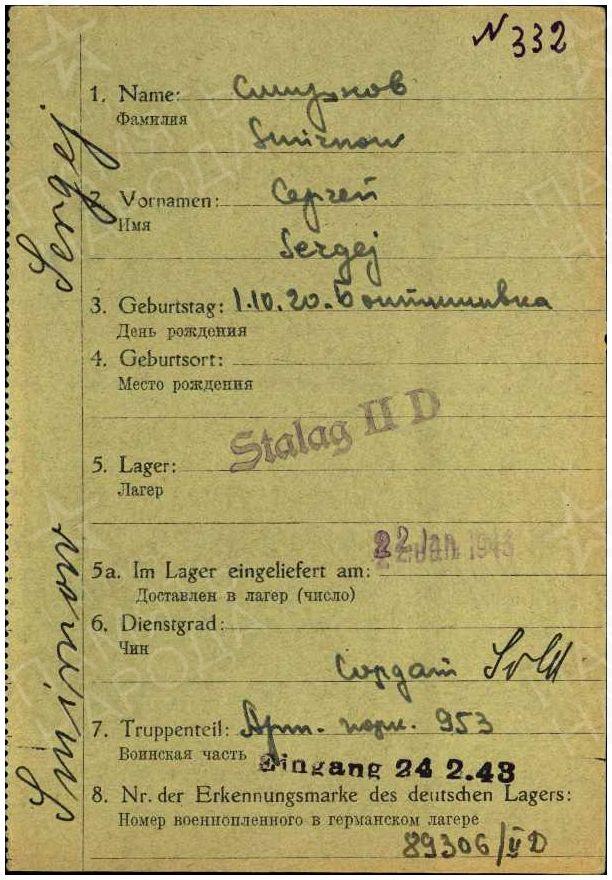 N 332
1. Name: Смирнов
Фамилия
Smirnow
2. Vornamen: Сергей
Имя
Sergej
3. Geburtstag: 1.10.20.
День рождения
4. Geburtsort:
Место рождения
Stalag II D
5. Lager:
Лагер
22 Jan. 1943
5a. Im Lager eingeliefert am:
Доставлен в лагер (число)
6. Dienstgrad:
Чин
Солдат Sold
7. Truppenteil: Арт. полк. 953
Воинская часть
Eingang 24 2.43
8. Nr. der Erkennungsmarke des deutschen Lagers:
Номер военнопленного в германском лагере
89306/II D
Smirnow Sergej